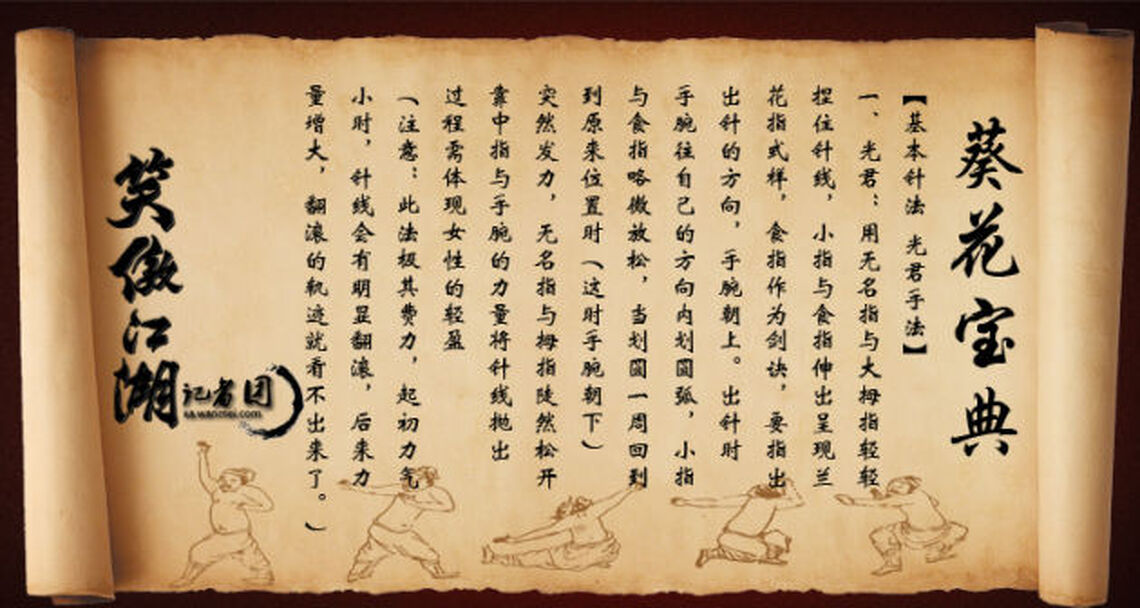 葵花宝典
【基本针法 光君手法】
一、光君：用无名指与大拇指轻轻
捏住针线，小指与食指伸出呈现兰
花指式样，食指作为剑诀，要指出
出针的方向，手腕朝上。出针时
手腕往自己的方向内划圆弧，小指
与食指略微放松，当划圆一周回到
到原来位置时（这时手腕朝下）
突然发力，无名指与拇指陡然松开
靠中指与手腕的力量将针线抛出
过程需体现女性的轻盈
（注意：此法极其费力，起初力气
小时，针线会有明显翻滚，后来力
量增大，翻滚的轨迹就看不出来了。）
笑傲江湖
记者团
xa.wanmei.com